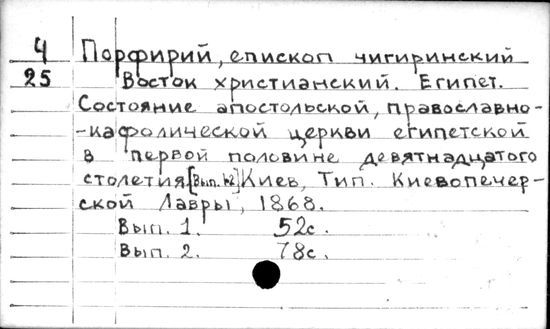 4 Порфирий, епископ чигиринский
25 Восток христианский. Египет.
Состояние апостольской, православно-
-кафолической церкви египетской
в первой половине девятнадцатого
столетия.[Вып. 1-2] Киев, Тип. Киевопечер-
ской Лавры, 1868.
Вып. 1. 52с.
Вып. 2. 78с.